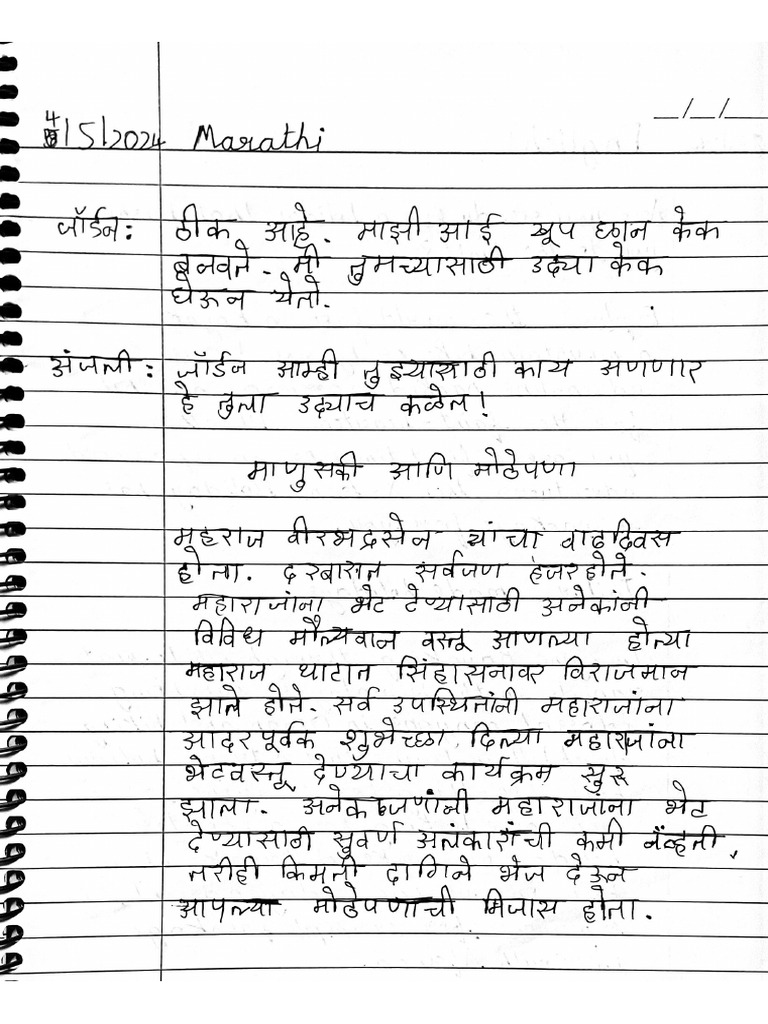 __/__/__
4/5/2024 Marathi
जॉर्डन: ठीक आहे. माझी आई खूप छान केक
बनवते. मी तुमच्यासाठी उद्या केक
घेऊन येतो.
अंजली: जॉर्डन आम्ही तुझ्यासाठी काय अणणार
हे तुला उद्याच कळेल!
माणुसकी आणि मोठेपणा
महराज वीरभद्रसेन यांचा वाढदिवस
होता. दरबारात सर्वजण हजर होते.
महाराजांना भेट देण्यासाठी अनेकांनी
विविध मौल्यवान वस्तू आणल्या होत्या
महाराज थाटात सिंहासनावर विराजमान
झाले होते. सर्व उपस्थितांनी महाराजांना
आदरपूर्वक शुभेच्छा दिल्या महाराजांना
भेटवस्तू देण्याचा कार्यक्रम सुरू
झाला. अनेकजणांनी महाराजांना भेट
देण्यासाठी सुवर्ण अलंकारांची कमी नव्हती,
तरीही किमती दागिने भेज देऊन
आपल्या मोठेपणाची मिजास होता.